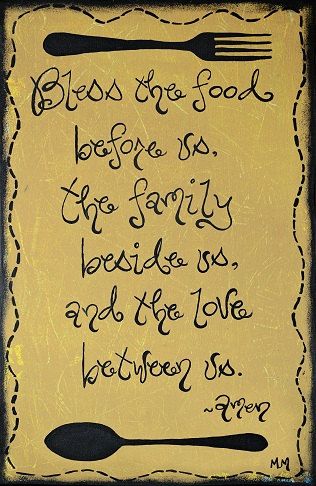 Bless the food
before us,
the family
beside us,
and the love
between us.
~amen
MM